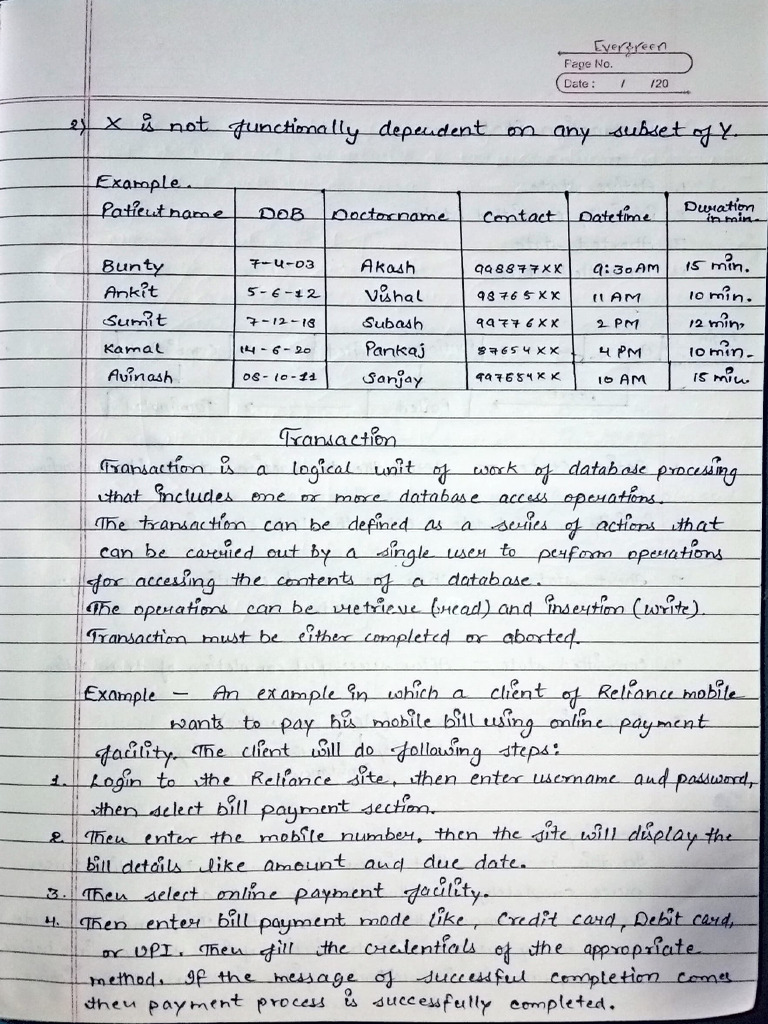 Evergreen
Page No.
Date : / /20
2) X is not functionally dependent on any subset of Y.
Example.
Patient name DOB Doctorname Contact Datetime Duration in min.
Bunty 7-4-03 Akash 998877XX 9:30AM 15 min.
Ankit 5-6-12 Vishal 98765XX 11 AM 10 min.
Sumit 7-12-18 Subash 99776XX 2 PM 12 min.
Kamal 14-6-20 Pankaj 87654XX 4 PM 10 min.
Avinash 08-10-11 Sanjay 997654XX 10 AM 15 min.
Transaction
Transaction is a logical unit of work of database processing
that includes one or more database access operations.
The transaction can be defined as a series of actions that
can be carried out by a single user to perform operations
for accessing the contents of a database.
The operations can be retrieve (read) and insertion (write).
Transaction must be either completed or aborted.
Example – An example in which a client of Reliance mobile
wants to pay his mobile bill using online payment
facility. The client will do following steps:
1. Login to the Reliance site, then enter username and password,
then select bill payment section.
2. Then enter the mobile number, then the site will display the
bill details like amount and due date.
3. Then select online payment facility.
4. Then enter bill payment mode like, Credit card, Debit card,
or UPI. Then fill the credentials of the appropriate
method. If the message of successful completion comes
then payment process is successfully completed.